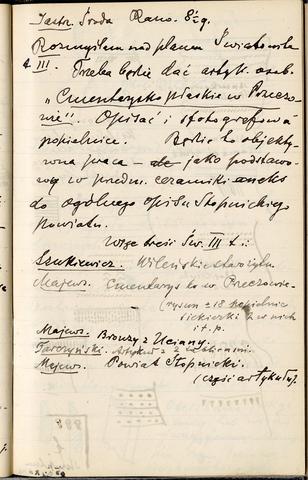 Jutro. Środa Rano. 8½ g.
Rozmyślam nad planem Światowita
t. III. Trzeba będzie dać artyk. osob.
„Cmentarzysko płaskie w Przeczo-
wie". Opisać i sfotografować
popielnice. Będzie to objekty-
wna praca — jako podstawo-
wej w przedm. ceramiki aneks
do ogólnego opisu Stopnickiego
powiatu.
Więc treść Św. III t.:
Szukiewicz. Wileńskie starożytn.
Majew. Cmentarzysko w Przeczowie
(rysun ±18 popielnic
siekierki z nich
i t. p.
Majew. Bronzy z Uciany.
Tarczyński. Artykuł z
Majew. Powiat Stopnicki.
(część artykułu)